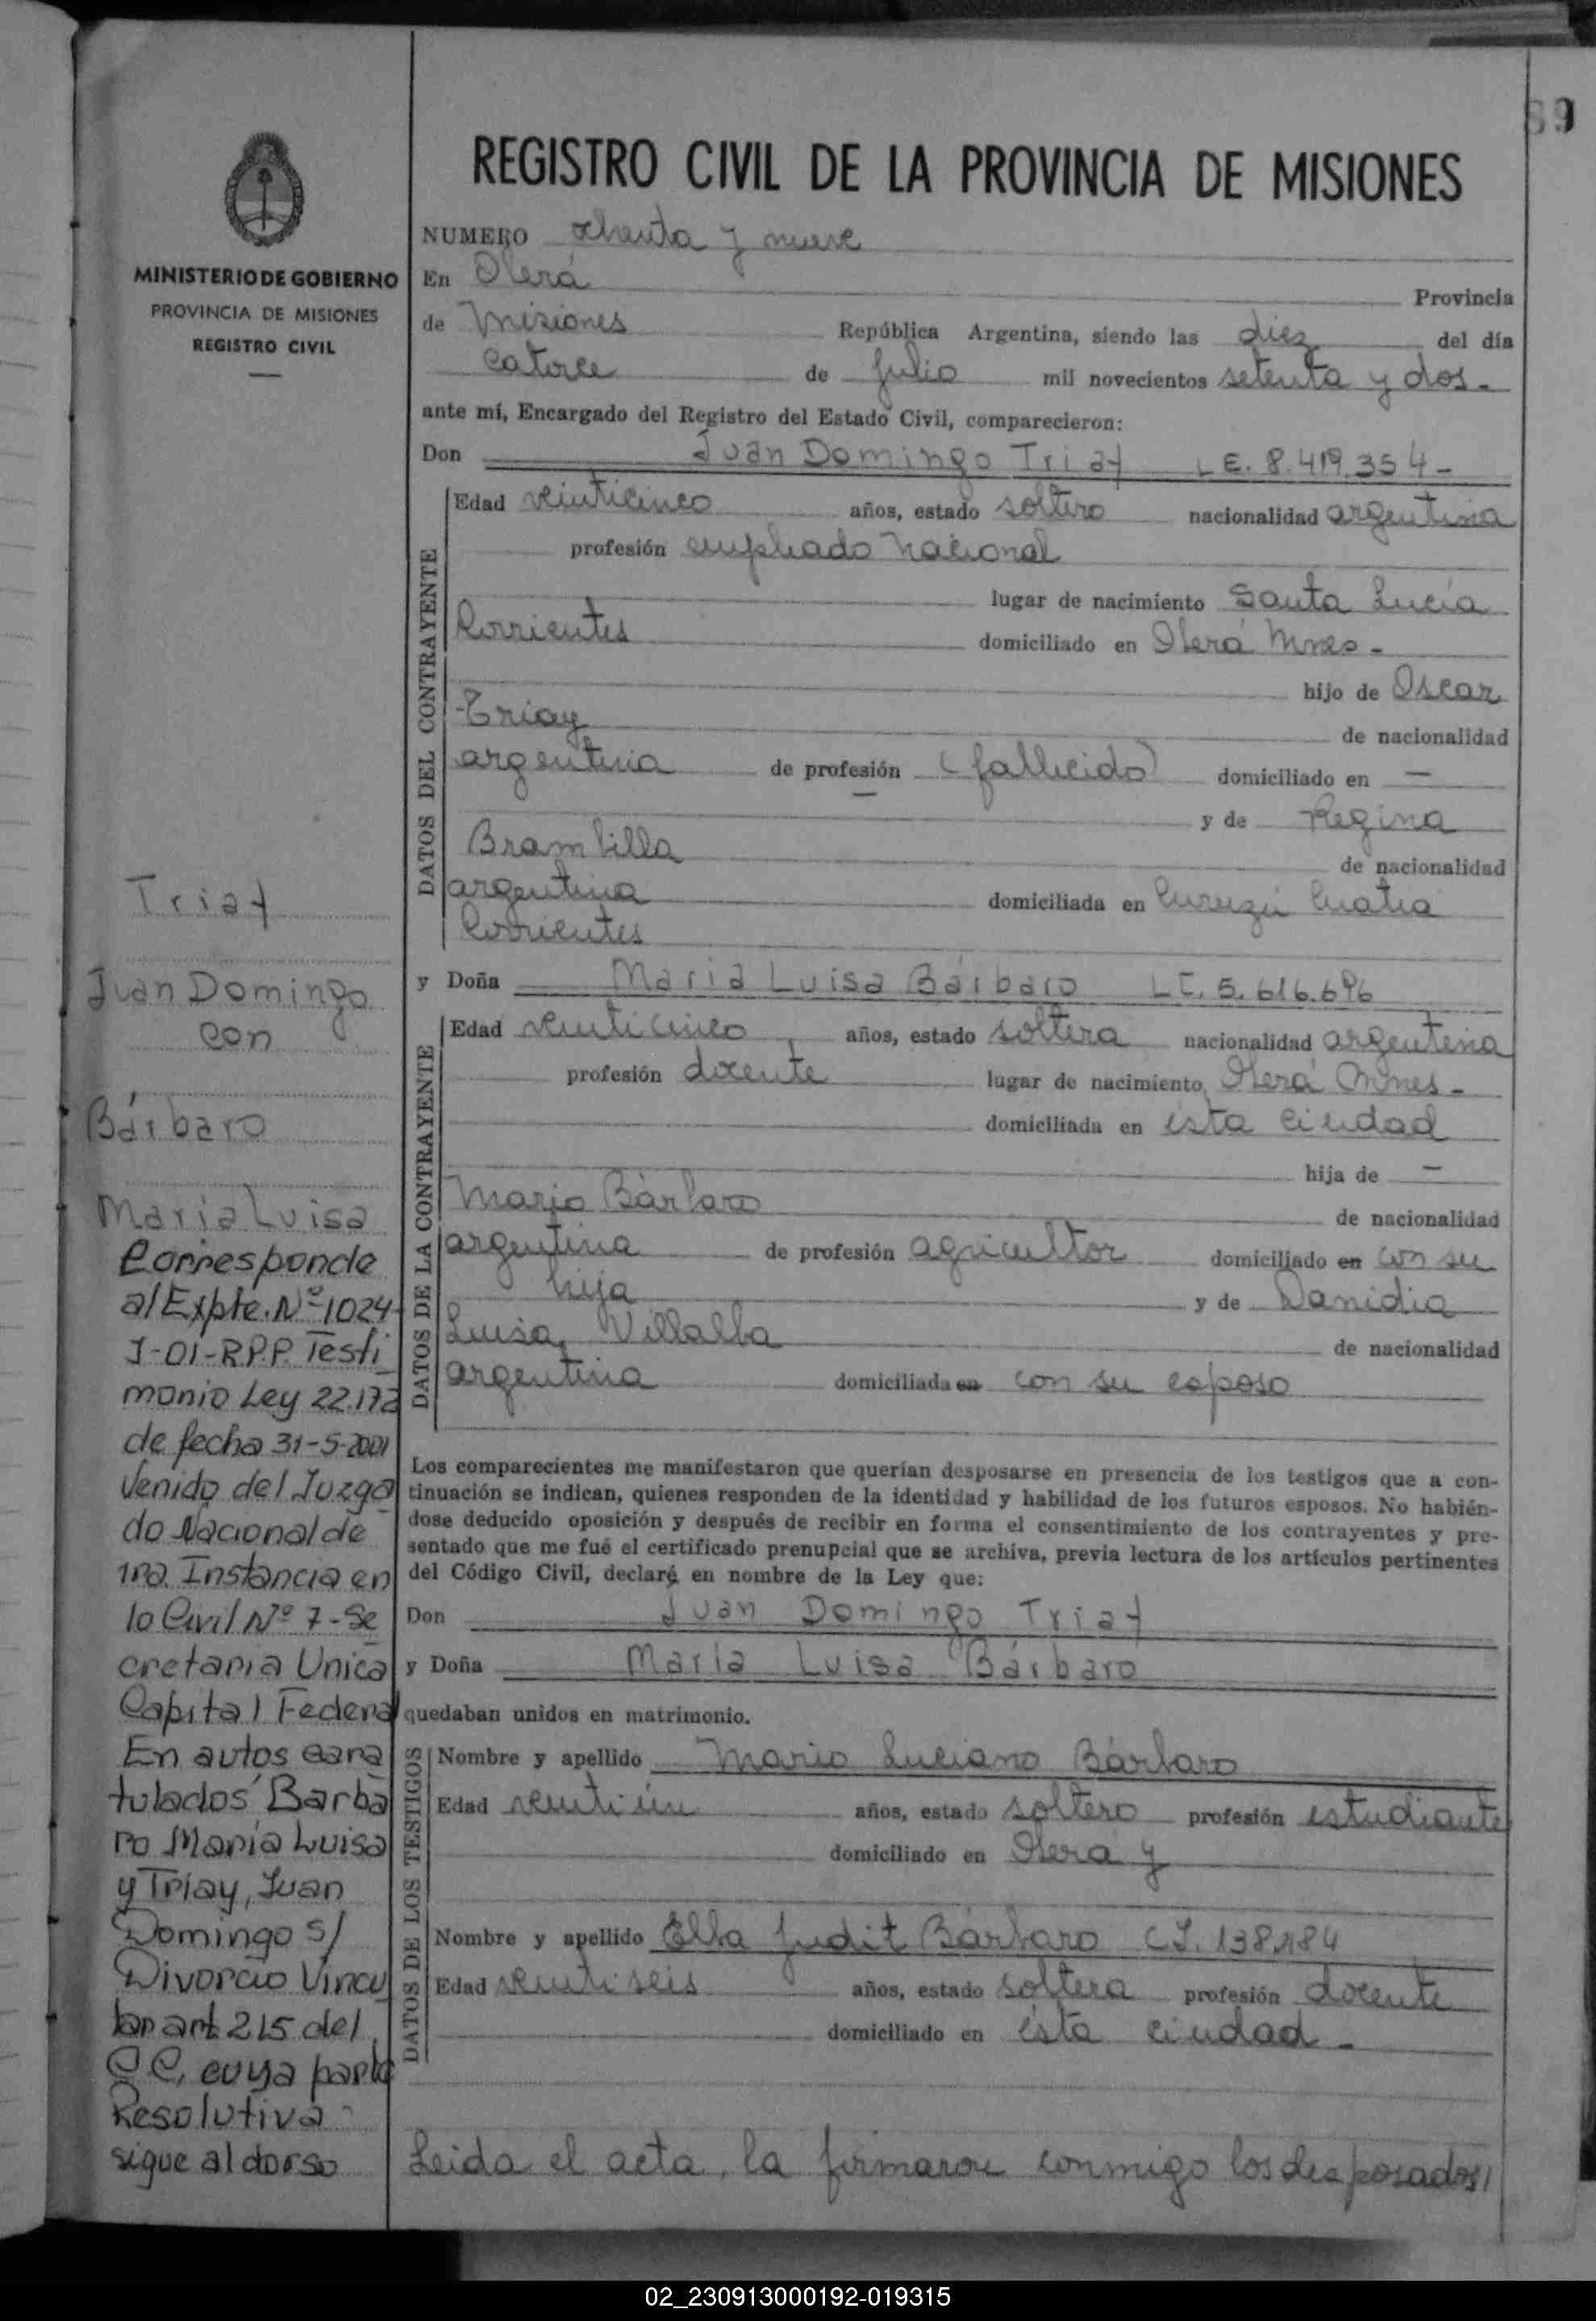 89
REGISTRO CIVIL DE LA PROVINCIA DE MISIONES
MINISTERIO DE GOBIERNO
PROVINCIA DE MISIONES
REGISTRO CIVIL
NUMERO ochenta y nueve
En Oberá Provincia
de Misiones República Argentina, siendo las diez del día
catorce de julio mil novecientos setenta y dos.-
ante mí, Encargado del Registro del Estado Civil, comparecieron:
Don Juan Domingo Triay L.E. 8.419.354-
DATOS DEL CONTRAYENTE
Edad veinticinco años, estado soltero nacionalidad argentina
profesión empleado nacional
lugar de nacimiento Santa Lucía
Corrientes domiciliado en Oberá Mnes-
hijo de Oscar
Triay de nacionalidad
argentina de profesión (fallecido) domiciliado en —
y de Regina
Brambilla de nacionalidad
argentina domiciliada en Curuzú Cuatia
Corrientes
y Doña María Luisa Bárbaro L.C. 5.616.696
DATOS DE LA CONTRAYENTE
Edad veinticinco años, estado soltera nacionalidad argentina
profesión docente lugar de nacimiento Oberá Mnes-
domiciliada en ésta ciudad
hija de —
Mario Bárbaro de nacionalidad
argentina de profesión agricultor domiciliado en con su
hija y de Danidia
Luisa Villalba de nacionalidad
argentina domiciliada en con su esposo
Los comparecientes me manifestaron que querían desposarse en presencia de los testigos que a con-
tinuación se indican, quienes responden de la identidad y habilidad de los futuros esposos. No habién-
dose deducido oposición y después de recibir en forma el consentimiento de los contrayentes y pre-
sentado que me fué el certificado prenupcial que se archiva, previa lectura de los artículos pertinentes
del Código Civil, declaré en nombre de la Ley que:
Don Juan Domingo Triay
y Doña María Luisa Bárbaro
quedaban unidos en matrimonio.
DATOS DE LOS TESTIGOS
Nombre y apellido Mario Luciano Bárbaro
Edad veintiún años, estado soltero profesión estudiante
domiciliado en Oberá y
Nombre y apellido Elba Judit Bárbaro C.I. 138.184
Edad veintiseis años, estado soltera profesión docente
domiciliado en ésta ciudad-
Leida el acta, la firmaron conmigo los desposados,
Triay
Juan Domingo
con
Bárbaro
María Luisa
Corresponde
al Expte. Nº 1024-
J-01-R.P.P. Testi
monio Ley 22.172
de fecha 31-5-2001
Venido del Juzga
do Nacional de
1ra. Instancia en
lo Civil Nº 7-Se
cretaria Unica
Capital Federal
En autos cara
tulados Barba
ro María Luisa
y Triay, Juan
Domingo s/
Divorcio Vincu
lar art. 215 del
C.C, cuya parte
Resolutiva
sigue al dorso
02_230913000192-019315